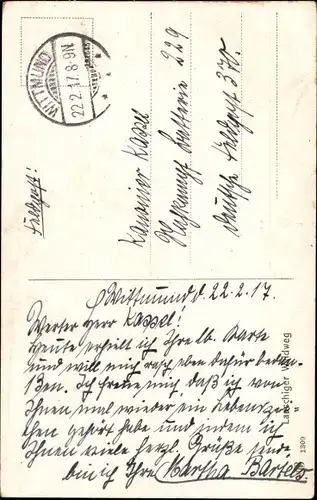 WITTMUND
22.2.17.8-9N
Feldpost!
Kanonier Kassel
Nahkampf Batterie 229
Deutsche Feldpost 370.
Wittmund d. 22.2.17.
Werter Herr Kassel!
Heute erhielt ich Ihre lb. Karte
und will mich rasch eben dafür bedan-
ken. Ich freue mich, daß ich von
Ihnen mal wieder ein Lebenszei-
chen gehört habe und indem ich
Ihnen viele herzl. Grüße sende
bin ich Ihre Martha Bartels.
Lauschiger Waldweg
1309